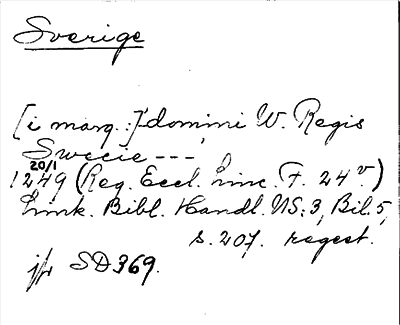 Sverige
[i marg.:] domini W. Regis
Swecie ---
20/1
1249 (Reg. Eccl. Linc. F. 24 v.)
Link. Bibl. Handl. NS: 3, Bil. 5,
s. 207. regest.
jfr SD 369.